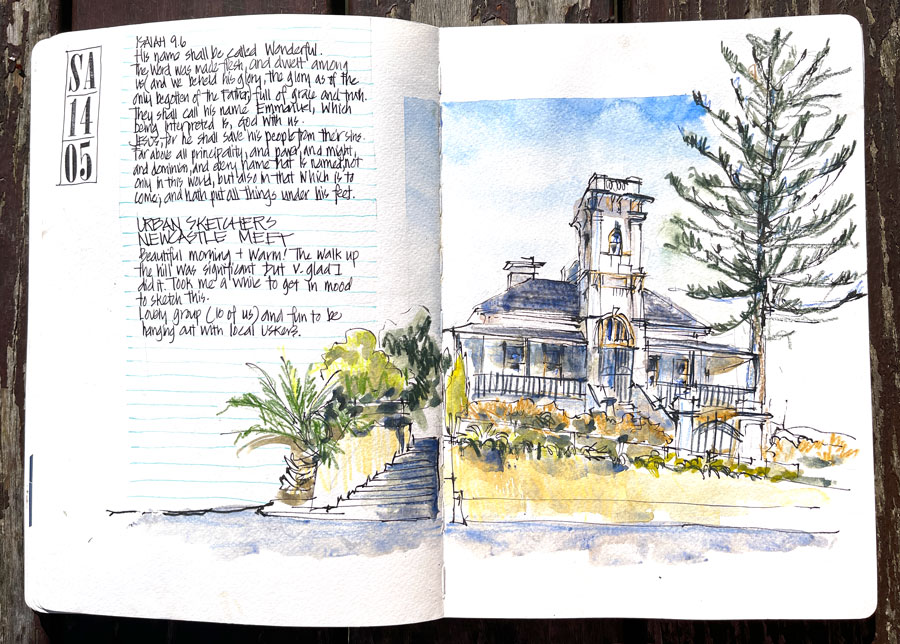 SA
14
05
ISAIAH 9.6
His name shall be called Wonderful.
The Word was made flesh, and dwelt among
us (and we beheld his glory, the glory as of the
only begotten of the Father) full of grace and truth.
They shall call his name Emmanuel, which
being interpreted is, God with us.
JESUS, for he shall save his people from their sins.
Far above all principality, and power, and might,
and dominion, and every name that is named, not
only in this world, but also in that which is to
come; and hath put all things under his feet.
URBAN SKETCHERS
NEWCASTLE MEET
Beautiful morning + warm! The walk up
the hill was significant but v. glad I
did it. Took me a while to get in mood
to sketch this.
Lovely group (10 of us) and fun to be
hanging out with local USkers.